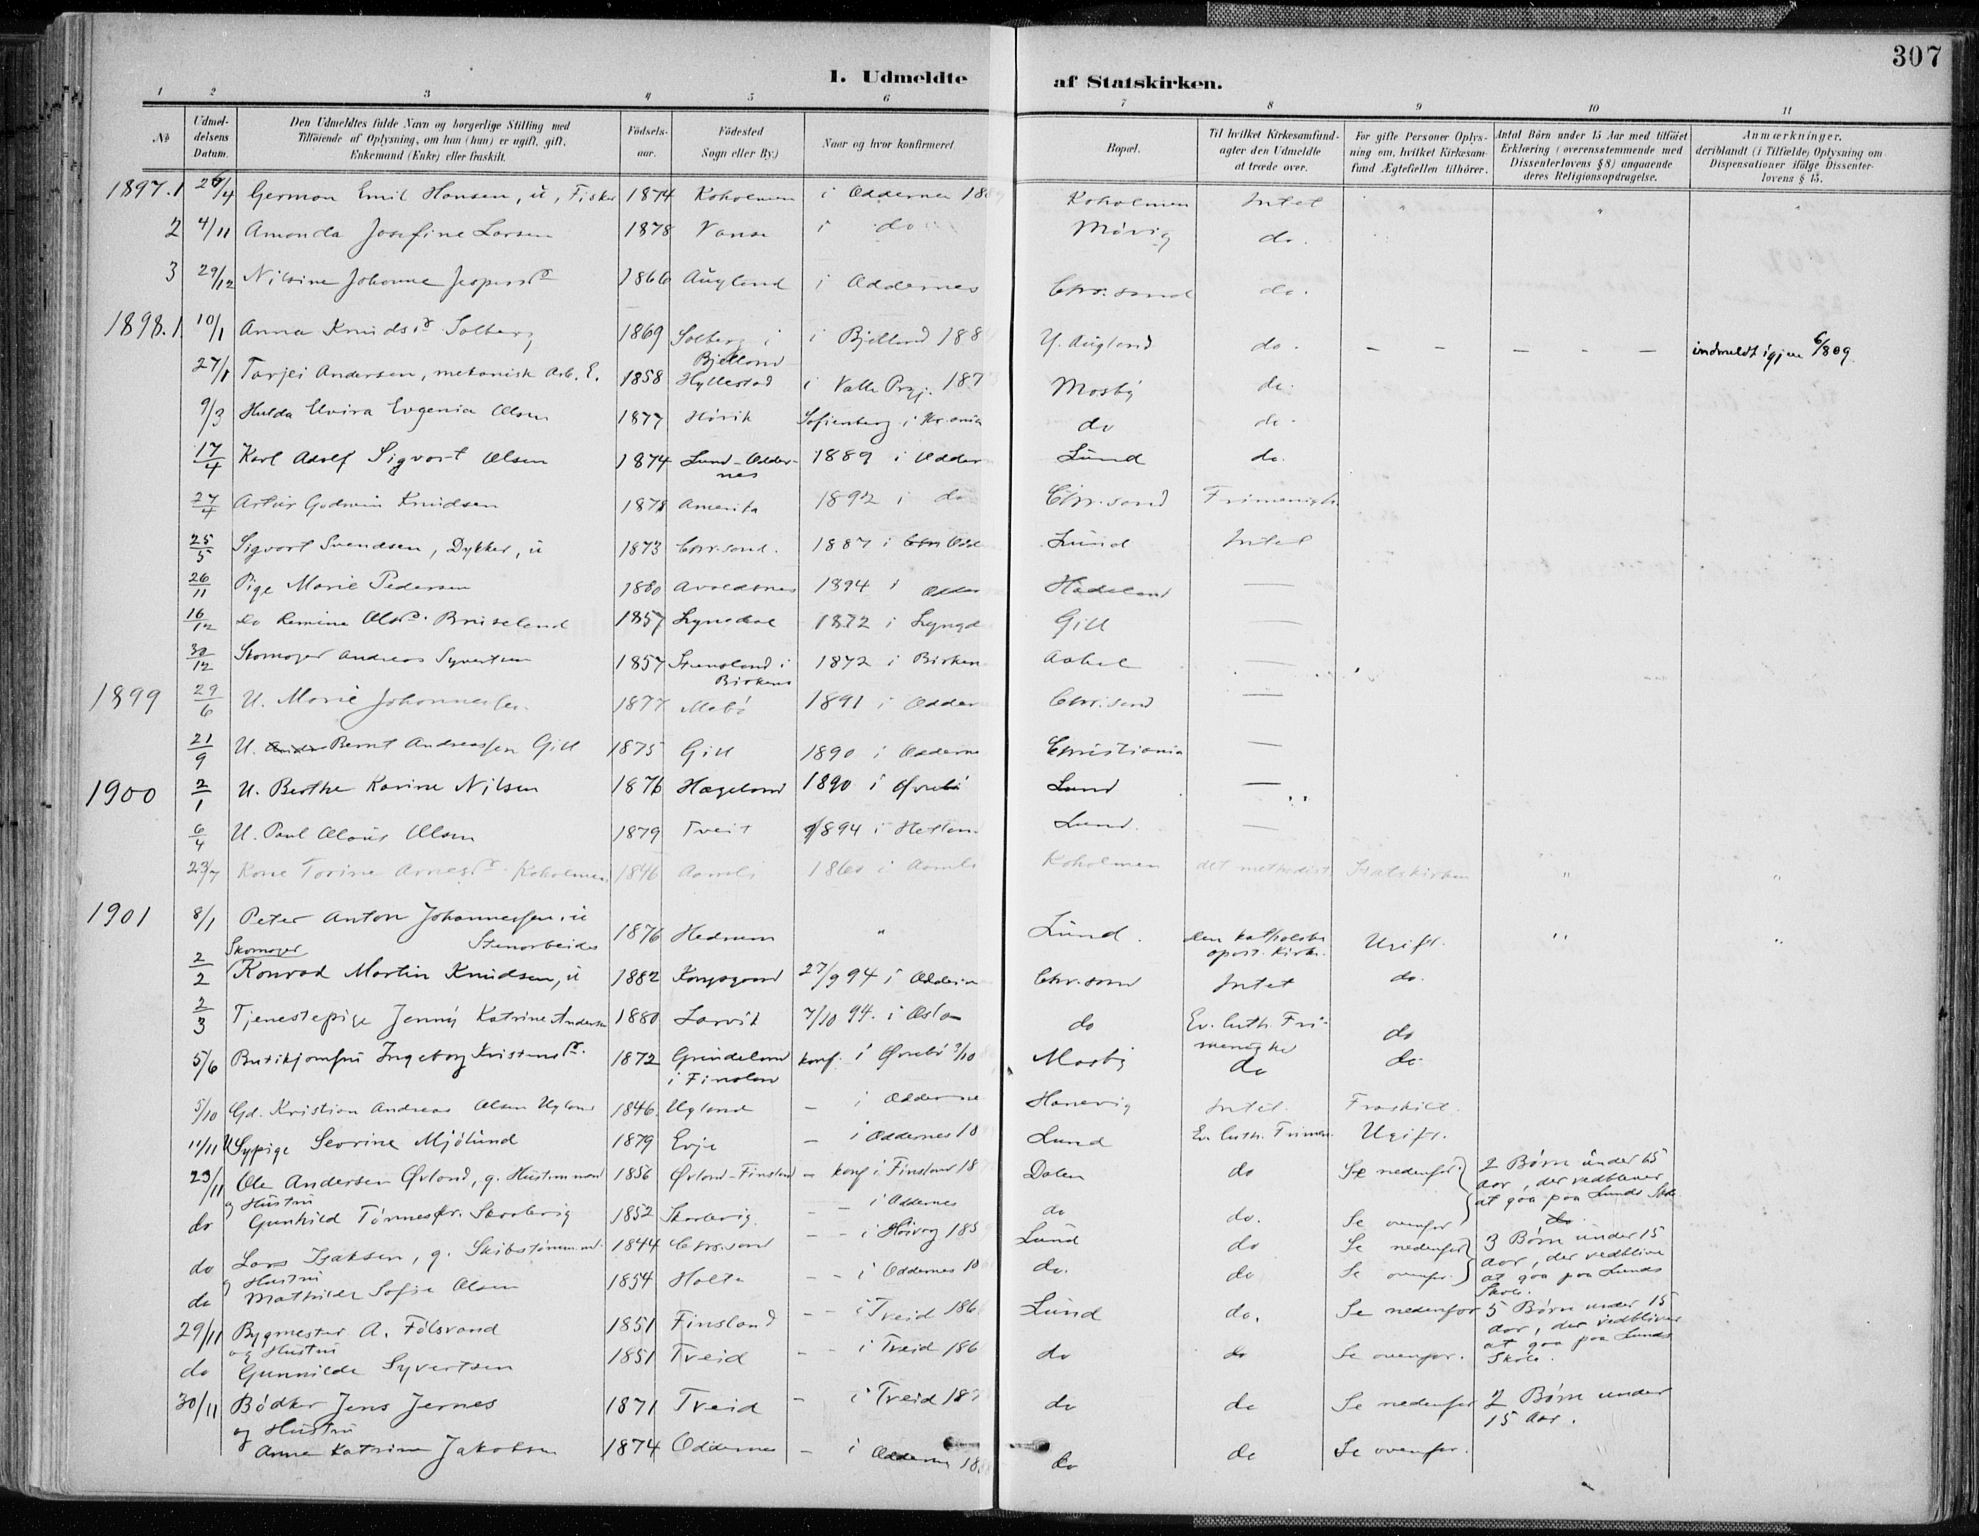 307
1. Udmeldte af Statskirken.
1 2 3 4 5 6 7 8 9 10 11
№ | Udmeldelsens Datum. | Den Udmeldtes fulde Navn og borgerlige Stilling med Tilföiende af Oplysning, om han (hun) er ugift, gift, Enkemand (Enke) eller fraskilt. | Födselsaar. | Födested Sogn eller By.) | Naar og hvor konfirmeret | Bopæl. | Til hvilket Kirkesamfund agter den Udmeldte at træde over. | For gifte Personer Oplysning om, hvilket Kirkesamfund Ægtefellen tilhörer. | Antal Börn under 15 Aar med tilföiet Erklæring (overensstemmende med Dissenterlovens § 8) angaaende deres Religionsopdragelse. | Anmærkninger, deriblandt (i Tilfælde) Oplysning om Dispensationer ifölge Dissenterlovens § 15.
1897. 1 26/4 German Emil Hansen, u, Fisker 1874 Koholmen i Oddernes Koholmen Intet " " "
2 4/11 Amanda Josefine Larsen 1878 Vanse i do Mövig do.
3 29/12 Nilsine Johanne Jespersdr 1866 Augland i Oddernes Chr.sand do.
1898. 1 10/1 Anna Knudsdr Solberg 1869 Solberg i Bjelland i Bjelland 188 Y. Augland do. – – – – – indmeldt igjen 6/8 09.
27/1 Tarjei Andersen, mekanisk Arb. E. 1858 Hyllestad i Valle Prgj. 187 Mosby do.
9/3 Hulda Elvira Eugenia Olsen 1877 Hövik Sofienberg i Kr.ania do do.
17/4 Karl Adolf Sigvart Olsen 1874 Lund-Oddernes 1889 i Odder Lund do.
27/4 Artur Godwin Knudsen 1878 Amerika 1892 i do Chr.sand Frimenigh.
25/5 Sigvart Svendsen, Dykker, u 1873 Chr.sand. 1887 i Odd Lund Intet
26/11 Pige Marie Pedersen 1880 Avaldsnes 1894 i Odder —
16/12 Do Olsdr. Bruseland 1857 Lyngdal 1872 i Lyngd Gill —
30/12 Skomager Andreas Syvertsen 1857 Stensland i Birkenes 1872 i Birken —
1899 29/6 U. Marie Johannessen. 1877 Mebö 1891 i Odder Chr.sand —
21/9 U. Bernt Andreassen Gill 1875 Gill 1890 i Odderne Christiania —
1900 2/1 U. Berthe Karine Nilsen 1876 Hægeland 1890 i Øvrebö Lund —
6/4 U. Paul Olaus Olsen 1879 Tveit 1894 i Hetlan Lund. —
23/7 Kone Torine Arnesdr. Koholmen 1846 Aamli 1860 i Aamli Koholmen det methodist. Statskirken " "
1901 8/1 Peter Anton Johannessen, u Stenarbeider 1876 Hedrum " Lund. Den katholske apost. Kirke. Ugift. " "
2/2 Skomager Konrad Martin Knudsen, u 1882 Kongsgaard 27/9 94 i Oddern Chr.sand Intet do.
2/3 Tjenestepige Jenny Katrine Andersen 1880 Larvik 7/10 94. i Oslo do Ev. luth. Frimenighe do
5/6 Butikjomfru Ingeborg Kristensdr. 1872 Grindeland i Finsland konf. i Øvrebö 7/10 Mosby do do.
5/10 Gd. Kristian Andreas Olsen Ugland 1846 Ugland – i Odderne Hanevig Intet. Fraskilt.
11/11 U Sypige Severine Mjölund 1879 Evje – i Oddernes 18 Lund Ev. luth. Frimen. Ugift.
23/11 Ole Andersen Øvland, g. Husmand 1856 Øvland-Finsland – konf i Finsland 18 Dalen do Se nedenfor. 2 Börn under 15 aar, der vedbliver at gaa paa Lunds Skole.
do og Hustru Gunhild Tönnesdr. Skarbevig 1852 Skarbevig. – – i Oddernes do do. Se ovenfor do
do Lars Isaksen, g. Skibstömmmd. 1844 Chr.sand – – i Höivaag 185 Lund do Se nedenfor 3 Börn under 15 aar, der vedblive at gaa paa Lunds Skole.
do og Hustru Mathilde Sofie Olsen 1854 Holte – – i Oddernes 18 do. do Se ovenfor.
29/11 Bygmester A. Fölsvand 1851 Finsland – – i Treid 186 Lund do. Se nedenfor 5 Börn under 15 aar, der vedbliver at gaa paa Lunds Skole.
do og Hustru Gunhilde Syvertsen 1851 Treid – – i Treid 186 do do Se ovenfor.
30/11 Bödker Jens Jernes 1871 Treid – i Treid 18 do do Se nedenfor 2 Börn under 15 Aar.
og Hustru Anne Katrine Jakobsen 1874 Oddernes – i Oddernes 18 do do Se ovenfor.